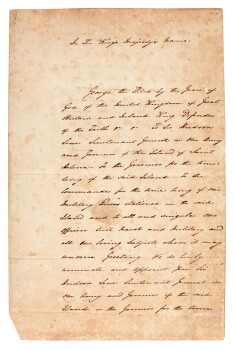 In The King's Majesty's Name.
George the Third by the Grace of
God of the United Kingdom of Great
Britain and Ireland King Defender
of the Faith &c &c To Sir Hudson
Lowe Lieutenant General in our Army
and Governor of the Island of Saint
Helena To the Governor for the time
being of the said Island To the
Commander for the time being of our
Military Forces stationed in the said
Island and to all and singular our
Officers Civil Naval and Military and
all our loving Subjects whom it may
concern Greeting We do hereby
nominate and appoint you Sir
Hudson Lowe Lieutenant General in
our Army and Governor of the said
Island or the Governor for the time